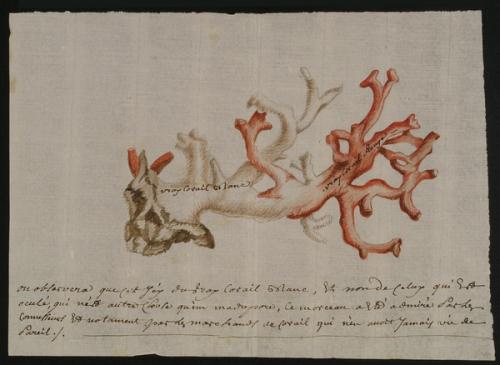 vray Corail blanc
vray Corail Rouge
on observera que cet icy du vray Corail blanc, & non de Celuy qui est
oculé, qui n'est autre Chose qu'un madrepore, Ce morceau a été admiré Par des
Connoisseurs et notament par des marchands de Corail qui n'en avoit Jamais vû de
Pareil ./.